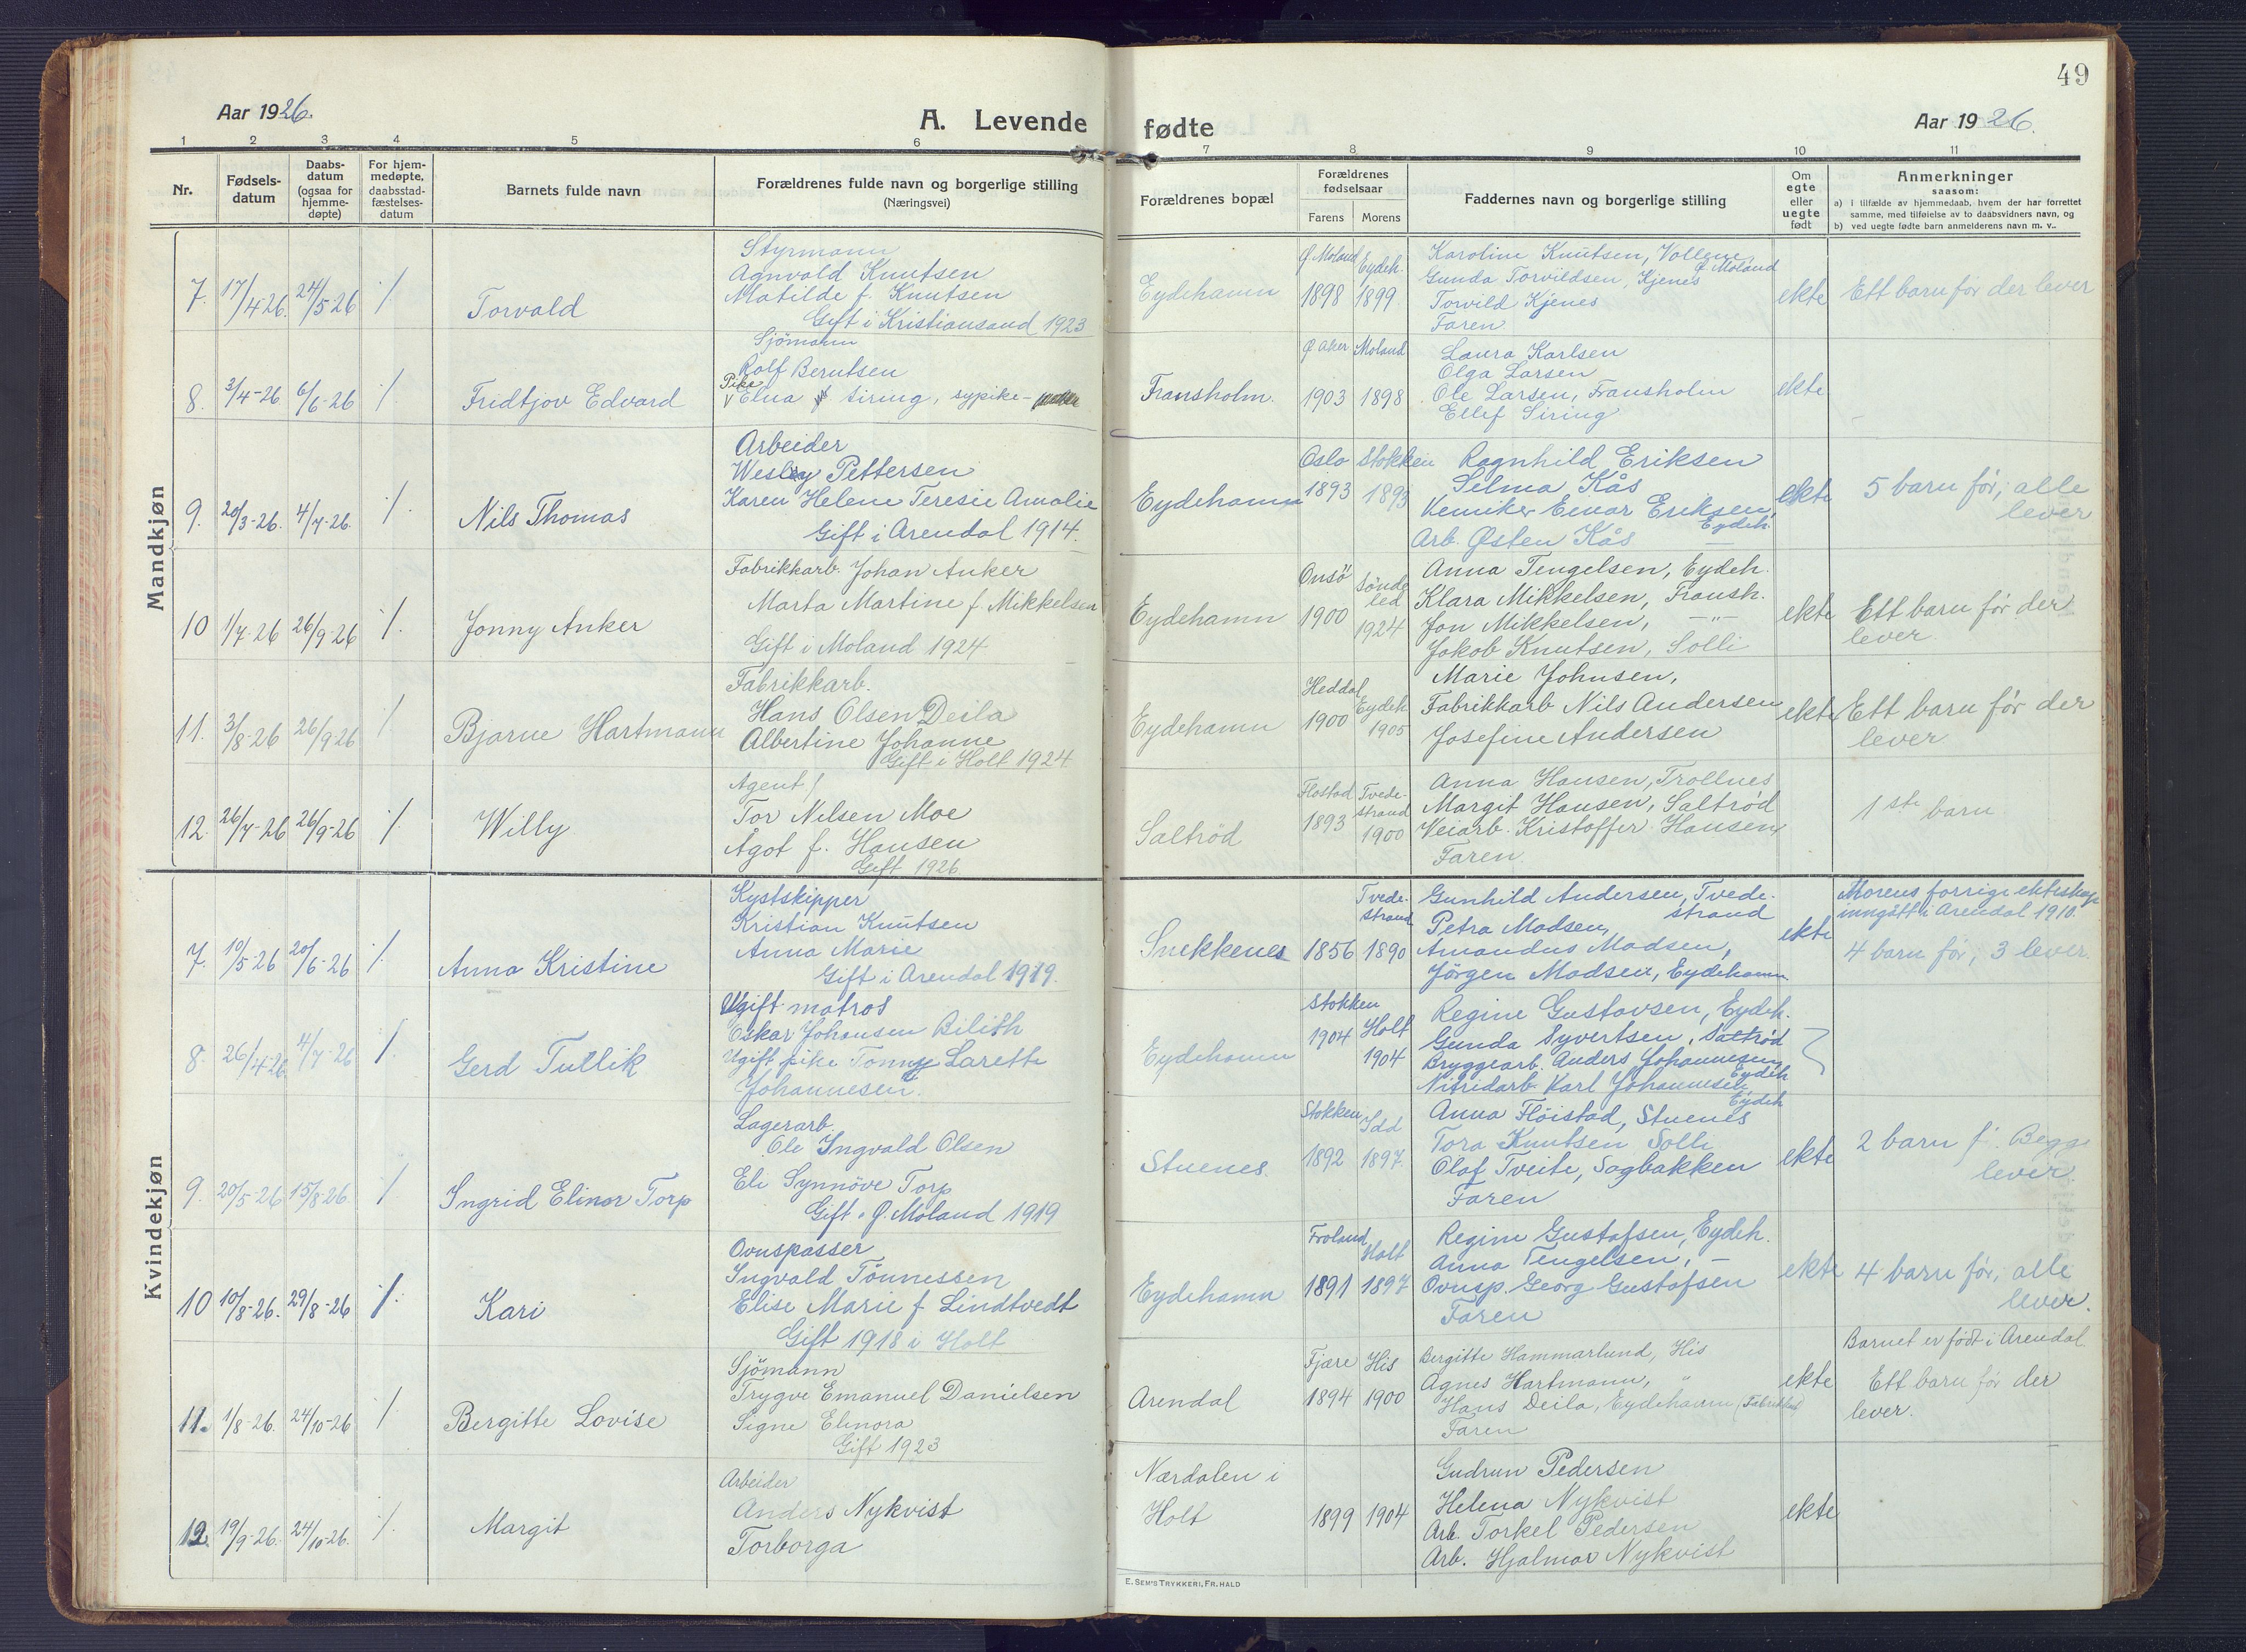 49
Aar 1926.
A. Levende fødte
Aar 1926.
1 2 3 4 5 6 7 8 9 10 11
Nr.
Fødsels-
datum
Daabs-
datum
(ogsaa for
hjemme-
døpte)
For hjem-
medøpte,
daabsstad-
fæstelses-
datum
Barnets fulde navn
Forældrenes fulde navn og borgerlige stilling
(Næringsvei)
Forældrenes bopæl
Forældrenes
fødselsaar
Farens Morens
Faddernes navn og borgerlige stilling
Om
egte
eller
uegte
født
Anmerkninger
saasom:
a) i tilfælde av hjemmedaab, hvem der har forrettet
samme, med tilføielse av to daabsvidners navn, og
b) ved uegte fødte barn anmelderens navn m. v..
Mandkjøn
7. 17/4-26. 24/5-26 ./.
Torvald
Styrmann
Agnvald Knutsen
Matilde f. Knutsen
Gift i Kristiansand 1923
Eydehamn
Ø Moland 1898
Eydeh. 1899
Karoline Knutsen, Vollene,
Ø Moland
Gunda Torvildsen, Kjenes
Torvild Kjenes
Faren
ekte
Ett barn før der lever
8. 3/4-26 6/6-26 ./.
Fridtjov Edvard
Sjömann
Rolf Berntsen
Pike
Elna Siring, sypike-
Fransholm.
Ø Aker 1903
Moland 1898
Laura Karlsen
Olga Larsen
Ole Larsen, Fransholm
Ellef Siring
ekte
9. 20/3-26. 4/7-26. ./.
Nils Thomas
Arbeider
Wesley Pettersen
Karen Helene Teresie Amalie
Gift i Arendal 1914.
Eydehamn
Oslo 1893
Stokken 1893
Ragnhild Eriksen
Selma Kås
Kemiker Einar Eriksen,
Eydeh.
Arb. Østen Kås —
ekte
5 barn før, alle
lever
10 1/7-26 26/9-26 ./.
Jonny Anker
Fabrikkarb. Johan Anker
Marta Martine f. Mikkelsen
Gift i Moland 1924
Eydehamn
Onsö 1900
Sönde
led
1924
Anna Tengelsen, Eydeh.
Klara Mikkelsen, Fransh.
Jon Mikkelsen, —"—
Jakob Knutsen, Solli
ekte
Ett barn før der
lever
11. 3/8-26 26/9-26 ./.
Bjarne Hartmann
Fabrikkarb.
Hans Olsen Deila
Albertine Johanne
Gift i Holt 1924
Eydehamn
Heddal 1900
Eydeh 1905
Marie Johnsen,
Fabrikkarb Nils Andersen
Josefine Andersen
ekte
Ett barn før der
lever
12. 26/7-26 26/9-26 ./.
Willy
Agent
Tor Nilsen Moe
Ågot f. Hansen
Gift 1926
Saltröd
Flostad 1893
Tvede-
strand
1900
Anna Hansen, Trollnes
Margit Hansen, Saltrød
Veiarb. Kristoffer Hansen,
Faren
1ste barn
Kvindekjøn
7. 10/5-26 20/6-26 ./.
Anna Kristine
Kystskipper
Kristian Knutsen
Anna Marie
Gift i Arendal 1919.
Snekkenes
1856
Tvede-
strand
1890
Gunhild Andersen, Tvede-
strand
Petra Madsen,
Amandus Madsen,
Jörgen Madsen, Eydehamn
ekte
Morens forrige ekteskap
inngått i Arendal 1910.
4 barn før, 3 lever.
8. 26/4-26. 4/7-26 ./.
Gerd Tullik
Ugift matros
Oskar Johansen Bilith
Ugift pike Tonny Larette
Johannesen.
Eydehamn
Stokken 1904
Holt 1904
Regine Gustavsen, Eydeh.
Gunda Syvertsen, Saltrød
Bryggearb. Anders Johannesen,
Eydeh
Nitridarb. Karl Johannesen
Eydeh
9. 20/5-26 15/8-26. ./.
Ingrid Elinor Torp
Lagerarb.
Ole Ingvald Olsen
Eli Synnöve Torp
Gift i Ø. Moland 1919
Stuenes.
Stokken 1892
Idd 1897.
Anna Flöistad, Stuenes
Tora Knutsen Solli
Olaf Tveite, Sagbakken
Faren
ekte
2 barn f. Begge
lever.
10 10/8-26. 29/8-26 ./.
Kari
Ovnspasser
Ingvald Tönnessen
Elise Marie f. Lindtvedt
Gift 1918 i Holt
Eydehamn
Froland 1891
Holt 1897
Regine Gustafsen, Eydeh.
Anna Tengelsen, —
Ovnsp. Georg Gustafsen
Faren
ekte
4 barn før, alle
lever.
11. 1/8-26. 24/10-26 ./.
Bergitte Lovise
Sjömann
Trygve Emanuel Danielsen
Signe Elinora
Gift 1923
Arendal
Fjære 1894
His 1900
Bergitte Hammarlund, His
Agnes Hartmann, "
Hans Deila, Eydehamn
Faren
ekte
Barnet er født i Arendal.
Ett barn før der
lever.
12. 19/9-26. 24/10-26. ./.
Margit
Arbeider
Anders Nykvist
Torborga
Nærdalen i
Holt
1899 1904
Gudrun Pedersen
Helena Nykvist
Arb. Torkel Pedersen
Arb. Hjalmar Nykvist
ekte
E. SEM'S TRYKKERI, FR.HALD